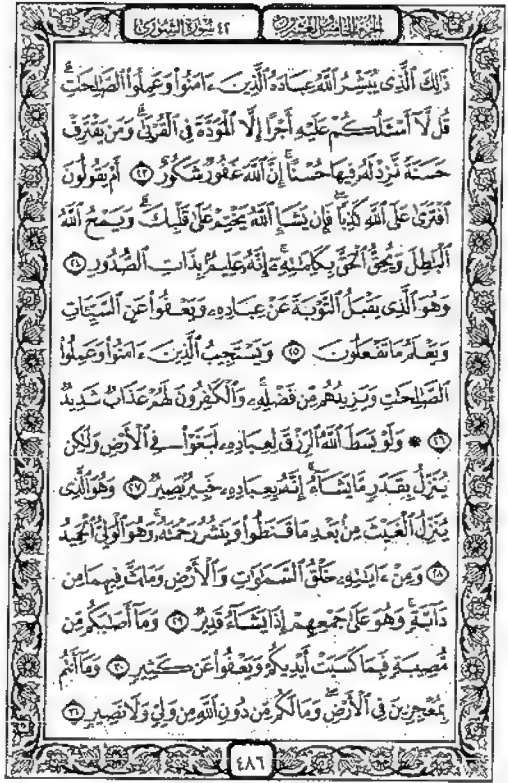 الجزء الخامس والعشرون ٤٢ سورة الشورى
ذَٰلِكَ ٱلَّذِى يُبَشِّرُ ٱللَّهُ عِبَادَهُ ٱلَّذِينَ ءَامَنُوا۟ وَعَمِلُوا۟ ٱلصَّٰلِحَٰتِ ۗ
قُل لَّآ أَسْـَٔلُكُمْ عَلَيْهِ أَجْرًا إِلَّا ٱلْمَوَدَّةَ فِى ٱلْقُرْبَىٰ ۗ وَمَن يَقْتَرِفْ
حَسَنَةً نَّزِدْ لَهُۥ فِيهَا حُسْنًا ۚ إِنَّ ٱللَّهَ غَفُورٌ شَكُورٌ ٢٣ أَمْ يَقُولُونَ
ٱفْتَرَىٰ عَلَى ٱللَّهِ كَذِبًا ۖ فَإِن يَشَإِ ٱللَّهُ يَخْتِمْ عَلَىٰ قَلْبِكَ ۗ وَيَمْحُ ٱللَّهُ
ٱلْبَٰطِلَ وَيُحِقُّ ٱلْحَقَّ بِكَلِمَٰتِهِۦٓ ۚ إِنَّهُۥ عَلِيمٌۢ بِذَاتِ ٱلصُّدُورِ ٢٤
وَهُوَ ٱلَّذِى يَقْبَلُ ٱلتَّوْبَةَ عَنْ عِبَادِهِۦ وَيَعْفُوا۟ عَنِ ٱلسَّيِّـَٔاتِ
وَيَعْلَمُ مَا تَفْعَلُونَ ٢٥ وَيَسْتَجِيبُ ٱلَّذِينَ ءَامَنُوا۟ وَعَمِلُوا۟
ٱلصَّٰلِحَٰتِ وَيَزِيدُهُم مِّن فَضْلِهِۦ ۚ وَٱلْكَٰفِرُونَ لَهُمْ عَذَابٌ شَدِيدٌ
٢٦ ۞ وَلَوْ بَسَطَ ٱللَّهُ ٱلرِّزْقَ لِعِبَادِهِۦ لَبَغَوْا۟ فِى ٱلْأَرْضِ وَلَٰكِن
يُنَزِّلُ بِقَدَرٍ مَّا يَشَآءُ ۚ إِنَّهُۥ بِعِبَادِهِۦ خَبِيرٌۢ بَصِيرٌ ٢٧ وَهُوَ ٱلَّذِى
يُنَزِّلُ ٱلْغَيْثَ مِنۢ بَعْدِ مَا قَنَطُوا۟ وَيَنشُرُ رَحْمَتَهُۥ ۚ وَهُوَ ٱلْوَلِىُّ ٱلْحَمِيدُ
٢٨ وَمِنْ ءَايَٰتِهِۦ خَلْقُ ٱلسَّمَٰوَٰتِ وَٱلْأَرْضِ وَمَا بَثَّ فِيهِمَا مِن
دَآبَّةٍ ۚ وَهُوَ عَلَىٰ جَمْعِهِمْ إِذَا يَشَآءُ قَدِيرٌ ٢٩ وَمَآ أَصَٰبَكُم مِّن
مُّصِيبَةٍ فَبِمَا كَسَبَتْ أَيْدِيكُمْ وَيَعْفُوا۟ عَن كَثِيرٍ ٣٠ وَمَآ أَنتُم
بِمُعْجِزِينَ فِى ٱلْأَرْضِ ۖ وَمَا لَكُم مِّن دُونِ ٱللَّهِ مِن وَلِىٍّ وَلَا نَصِيرٍ ٣١
٤٨٦